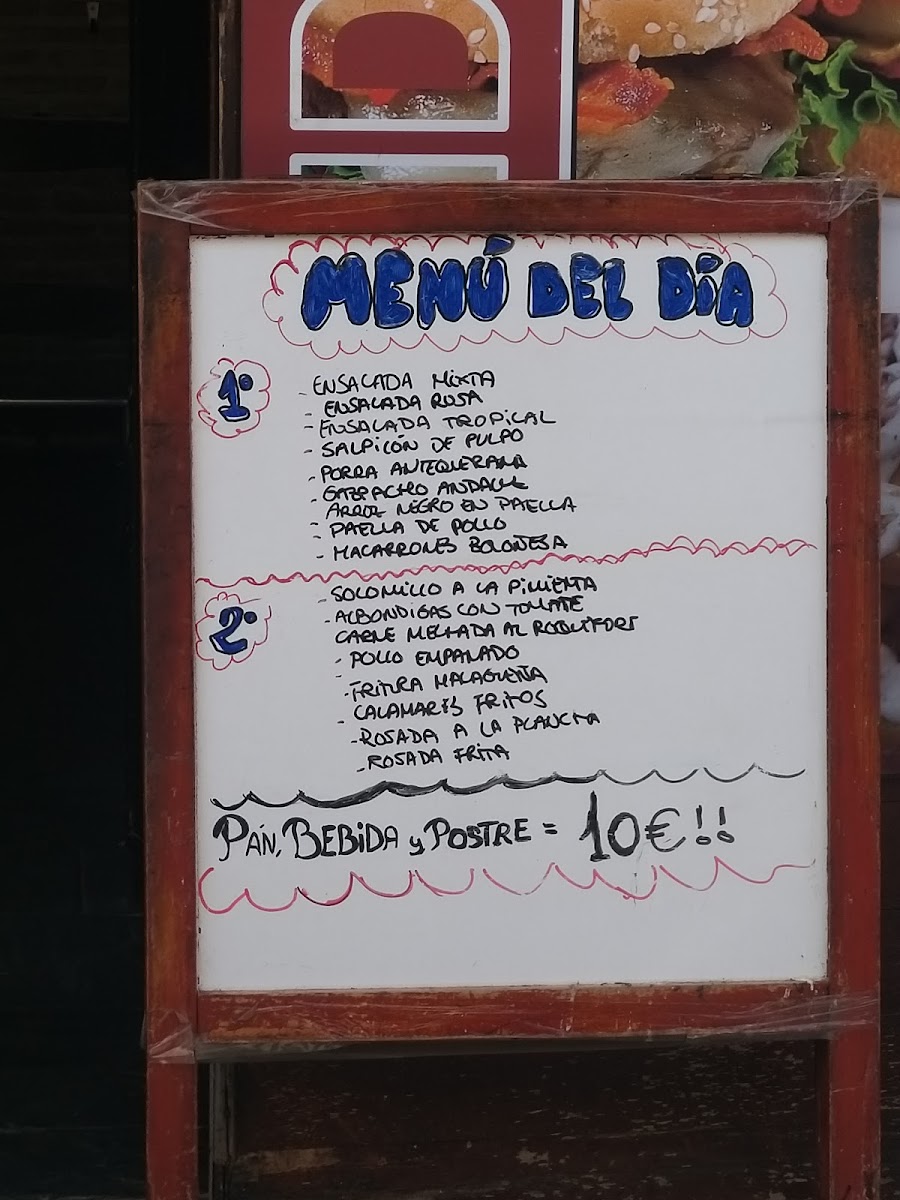 MENÚ DEL DÍA
1º
- ENSALADA MIXTA
- ENSALADA ROSA
- ENSALADA TROPICAL
- SALPICÓN DE PULPO
- PORRA ANTEQUERANA
- GAZPACHO ANDALUZ
ARROZ NEGRO EN PAELLA
- PAELLA DE POLLO
- MACARRONES BOLOÑESA
2º
- SOLOMILLO A LA PIMIENTA
- ALBONDIGAS CON TOMATE
CARNE MECHADA AL ROQUEFORT
- POLLO EMPANADO
- FRITURA MALAGUEÑA
- CALAMARES FRITOS
- ROSADA A LA PLANCHA
- ROSADA FRITA
PAN, BEBIDA y POSTRE = 10€!!